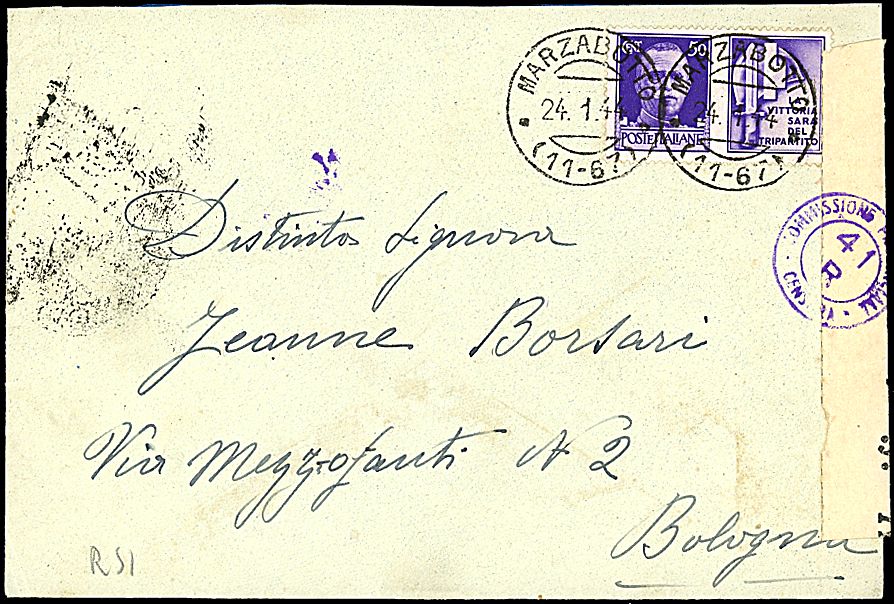 MARZABOTTO
24.1.44
(11-67)
MARZABOTTO
24.1.44
(11-67)
50
POSTE ITALIANE
VITTORIA
SARÀ
DEL
TRIPARTITO
COMMISSIONE
41
R
Distinta Signora
Jeanne Borsari
Via Mezzofanti N 2
Bologna
RSI